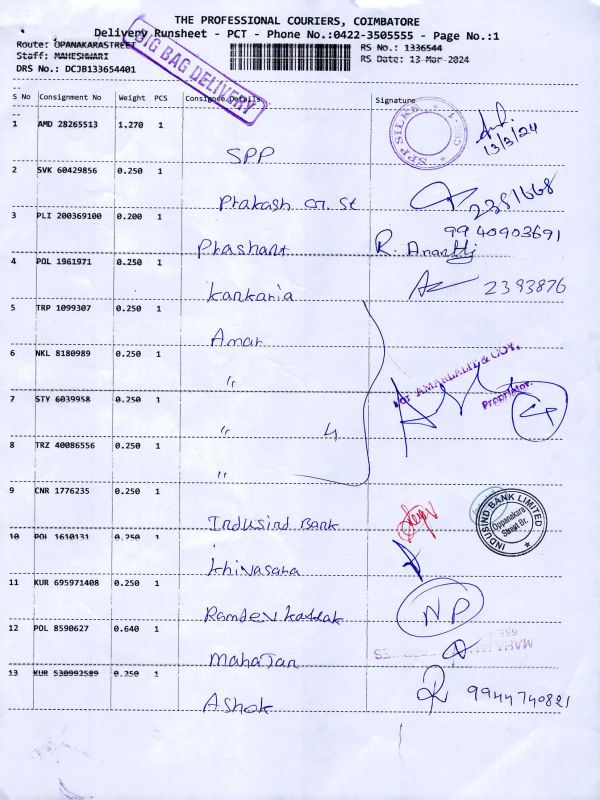 THE PROFESSIONAL COURIERS, COIMBATORE
Delivery Runsheet - PCT - Phone No.:0422-3505555 - Page No.:1
Route: OPANAKARASTREET
RS No.: 1336544
Staff: MAHESHWARI
RS Date: 13-Mar-2024
DRS No.: DCJB133654401
BIG BAG DELIVERY
S No Consignment No Weight PCS Consignee Details Signature
1 AMD 28265513 1.270 1
SPP SILKS
SPP
13/3/24
2 SVK 60429856 0.250 1
Prakash G. St
2351668
3 PLI 200369100 0.200 1
9940903691
Prashant R. Ananthj
4 POL 1961971 0.250 1
Kankaria 2393876
5 TRP 1099307 0.250 1
Amar
6 NKL 8180989 0.250 1
"
For AMARLALIT & COY.
Proprietor.
7 STY 6039958 0.250 1
" 4
8 TRZ 40086556 0.250 1
"
9 CNR 1776235 0.250 1
INDUSIND BANK LIMITED
Oppanakara
Street Br.
Indusind Bank
10 POL 1610131 0.250 1
Khivasara
11 KUR 695971408 0.250 1
Ramdev Kattak NP
12 POL 8590627 0.640 1
Mahajan
13 KUR 530992589 0.250 1
Ashok 9944740821